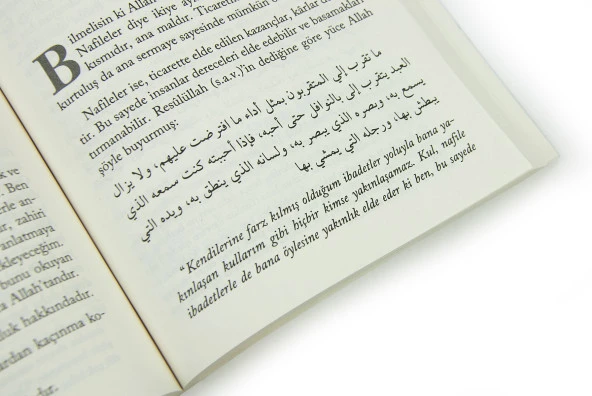 k ve
. Ben
rle an-
r, zahiri
anlatmaya
kleyeceğim.
bunu okuyan
a Allah'tandır.
luk hakkındadır.
ardan kaçınma ko-
dır.
Bilmelisin ki Allah
Nafileler diye ikiye ay
kısmıdır, ana maldır. Ticaretin
kurtuluş da ana sermaye sayesinde mümkün o
Nafileler ise, ticarette elde edilen kazançlar, kârlar d
tir. Bu sayede insanlar dereceleri elde edebilir ve basamakları
tırmanabilir. Resûlüllah (s.a.v.)'in dediğine göre yüce Allah
şöyle buyurmuş:
ما تقرب إلي المتقربون بمثل أداء ما افترضت عليهم؛ ولا يزال
العبد يتقرب إلي بالنوافل حتى أحبه، فإذا أحببته كنت سمعه الذي
يسمع به، وبصره الذي يبصر به، ولسانه الذي ينطق به، ويده التي
يبطش بها، ورجله التي يمشي بها
“Kendilerine farz kılmış olduğum ibadetler yoluyla bana ya-
kınlaşan kullarım gibi hiçbir kimse yakınlaşamaz. Kul, nafile
ibadetlerle de bana öylesine yakınlık elde eder ki ben, bu sayede